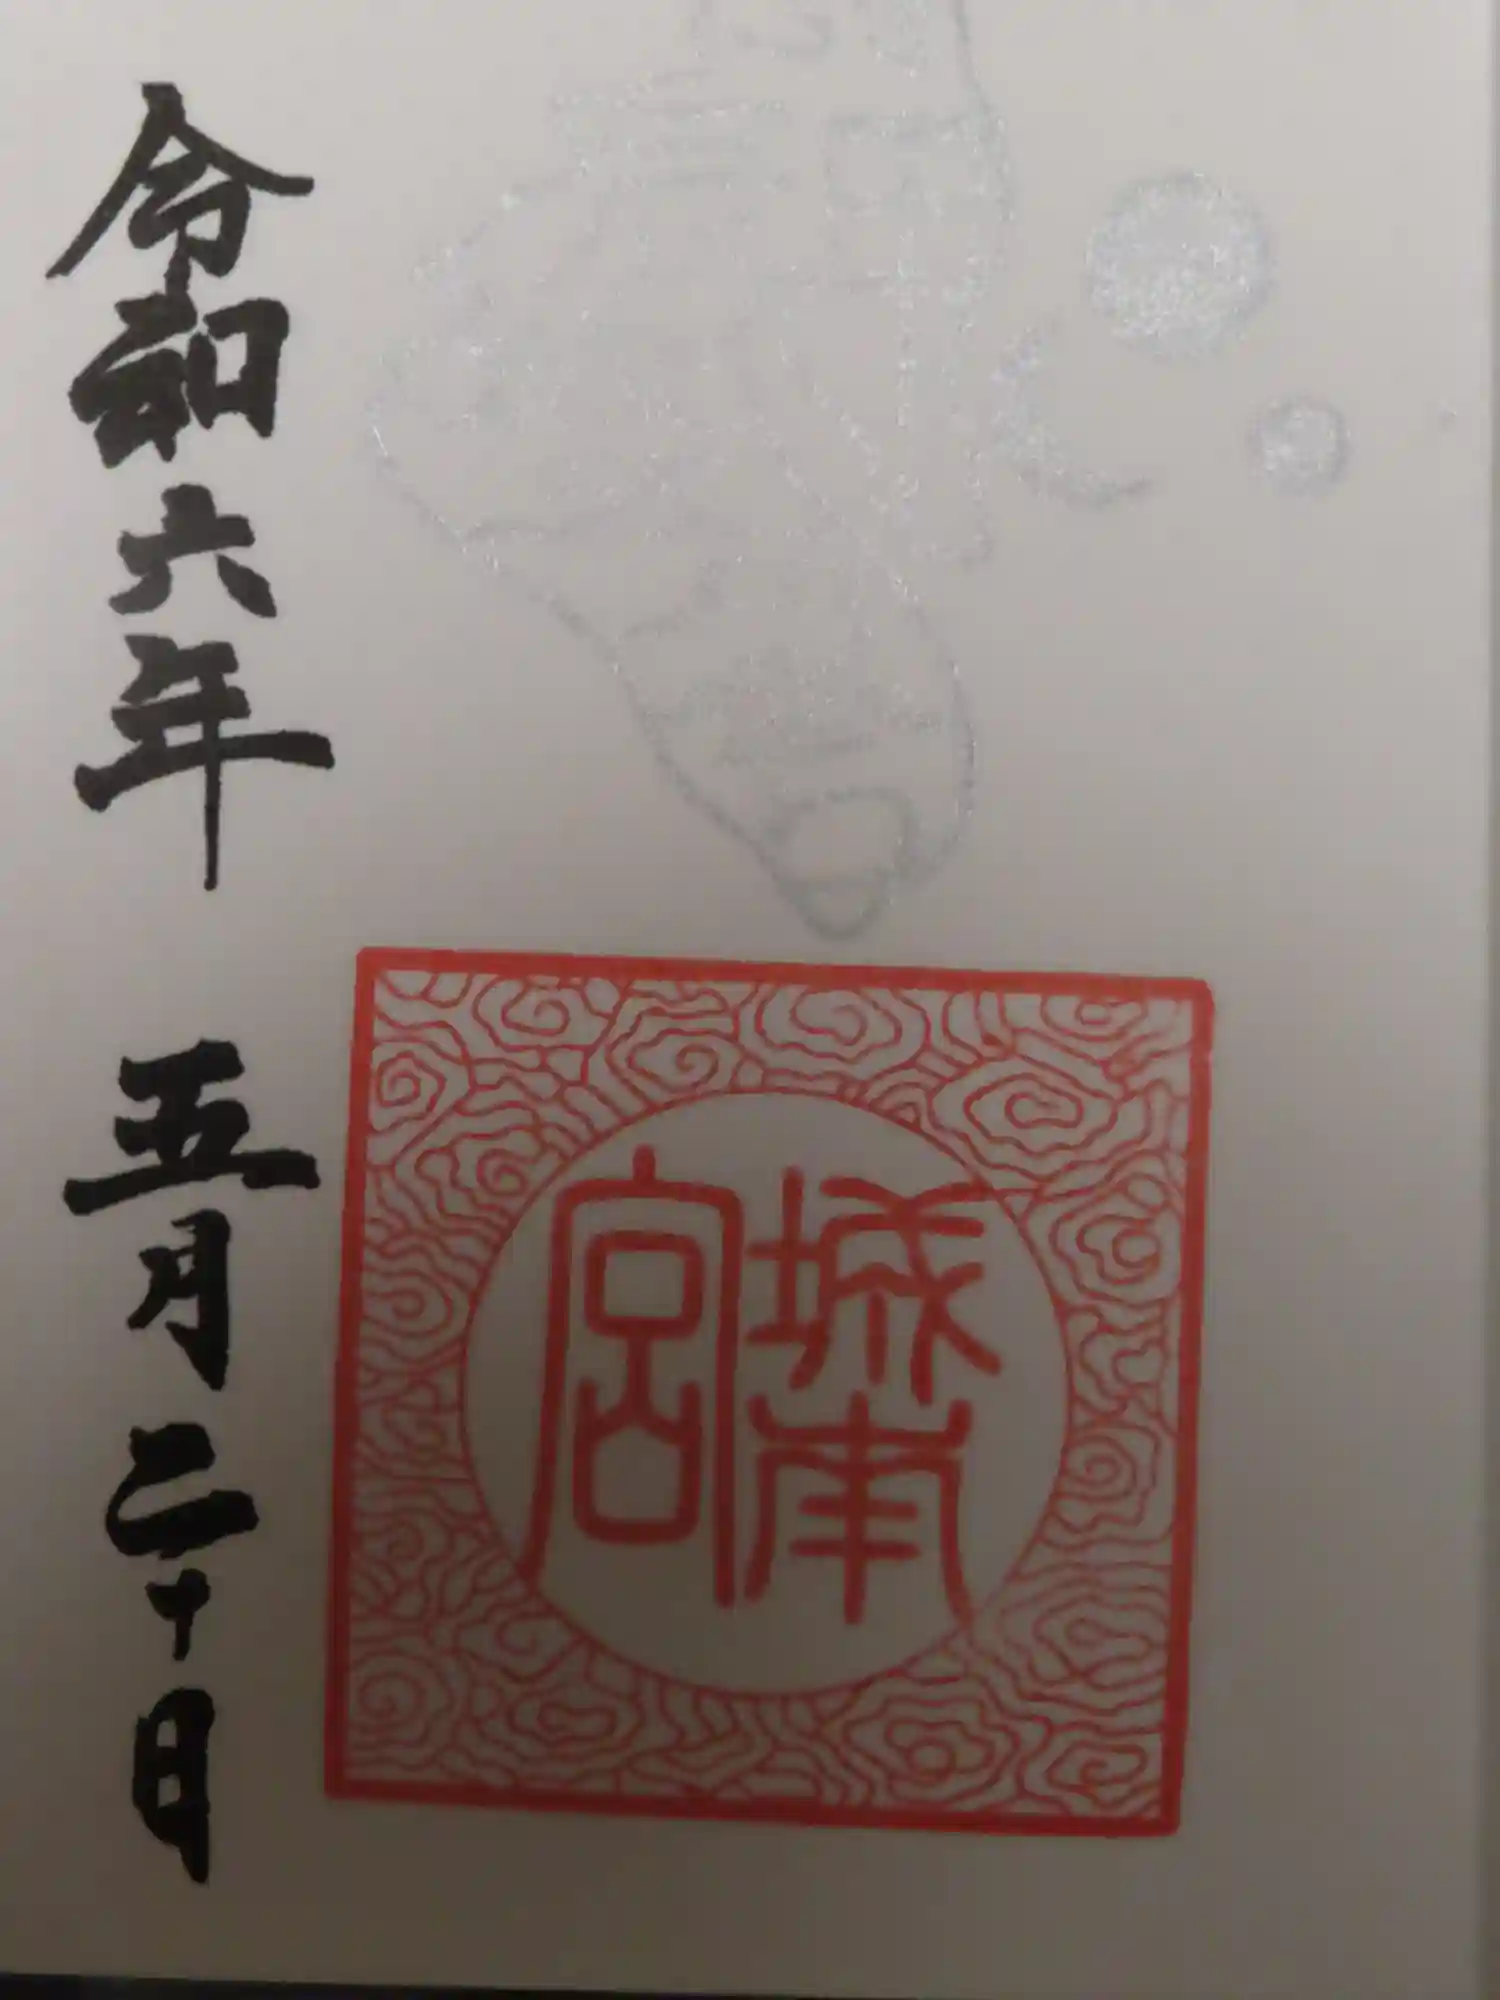 城南宮
令和六年 五月二十日